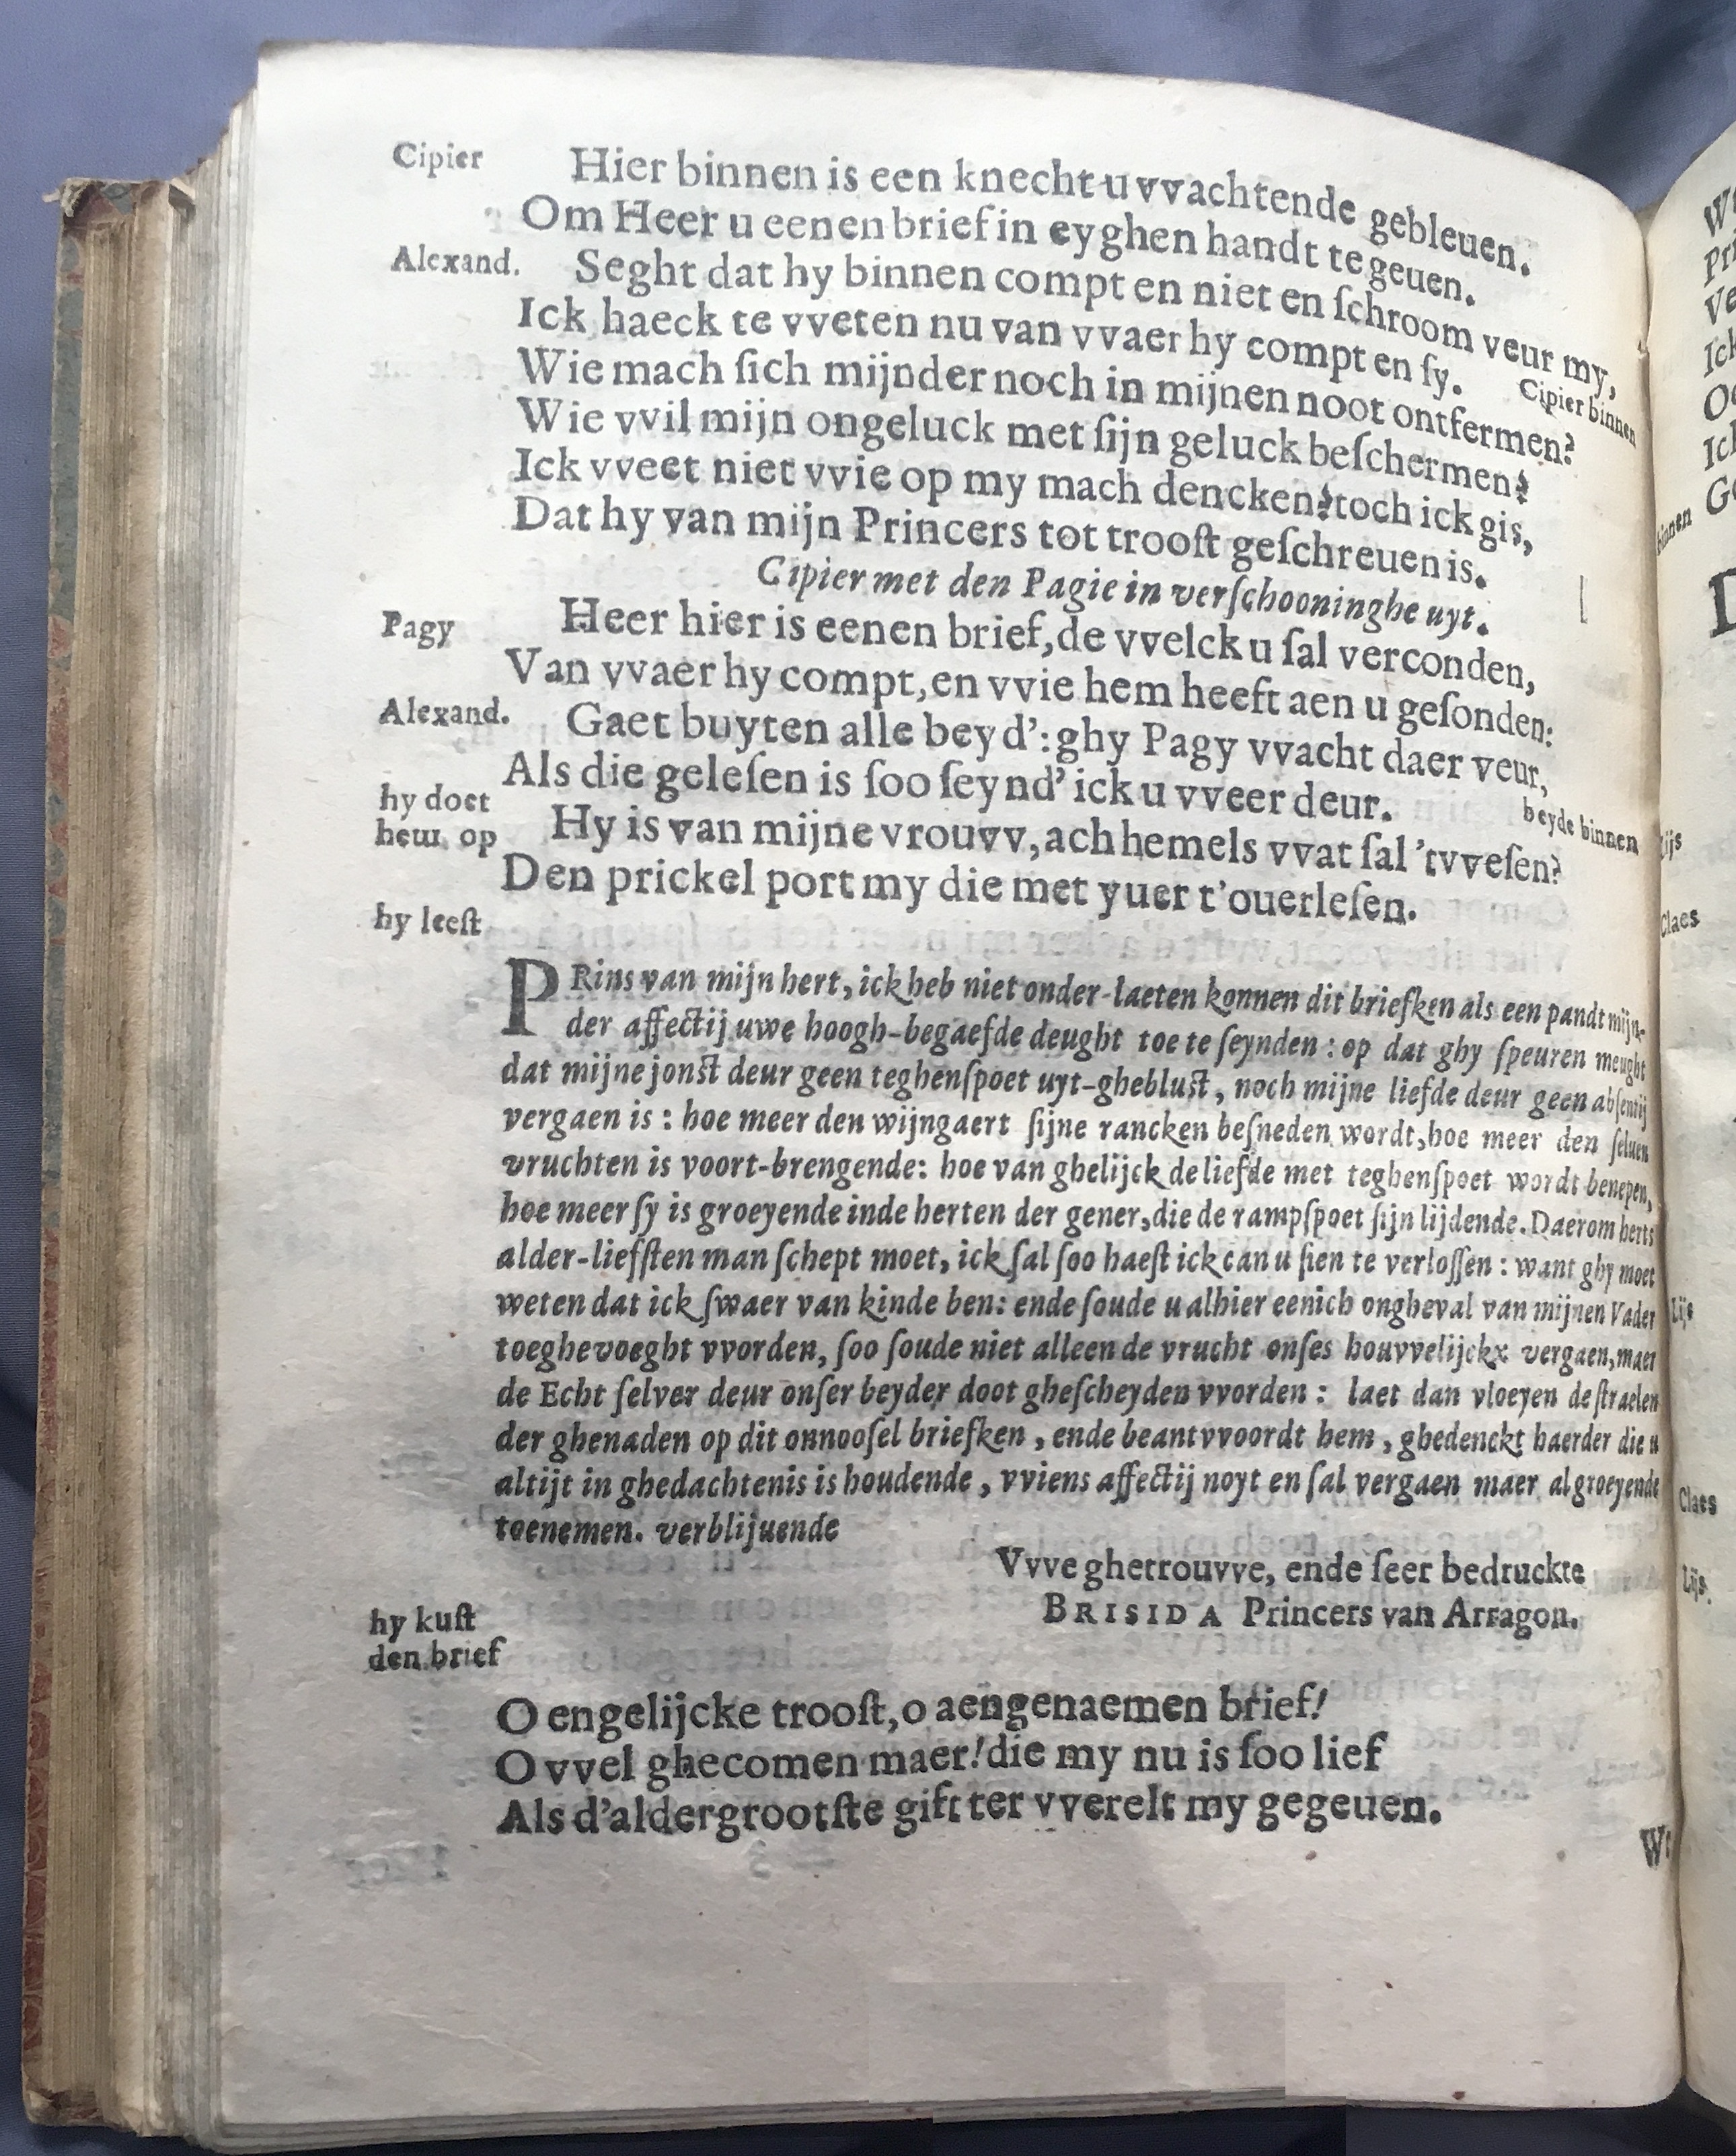 Cipier Hier binnen is een knecht u vvachtende gebleuen.
Om Heer u eenen brief in eyghen handt te geuen.
Alexand. Seght dat hy binnen compt en niet en ſchroom veur my,
Ick haeck te vveten nu van vvaer hy compt en ſy. Cipier binnen
Wie mach ſich mijnder noch in mijnen noot ontfermen?
Wie vvil mijn ongeluck met ſijn geluck beſchermen?
Ick vveet niet vvie op my mach dencken? toch ick gis,
Dat hy van mijn Princers tot trooſt geſchreuen is.
Cipier met den Pagie in verſchooninghe uyt.
Pagy Heer hier is eenen brief, de vvelck u ſal verconden,
Van vvaer hy compt, en vvie hem heeft aen u geſonden:
Alexand. Gaet buyten alle beyd': ghy Pagy vvacht daer veur,
Als die geleſen is ſoo ſeynd' ick u vveer deur. beyde binnen
hy doet
hem op Hy is van mijne vrouvv, ach hemels vvat ſal 'tvveſen?
Den prickel port my die met yuer t'ouerleſen.
hy leeſt
PRins van mijn hert, ick heb niet onder-laeten konnen dit briefken als een pandt mijn-
der affectij uwe hoogh-begaefde deught toe te ſeynden: op dat ghy ſpeuren meught
dat mijne jonſt deur geen teghenſpoet uyt-gheblust, noch mijne liefde deur geen abſentij
vergaen is: hoe meer den wijngaert ſijne rancken beſneden wordt, hoe meer den ſeluen
vruchten is voort-brengende: hoe van ghelijck de liefde met teghenſpoet wordt benepen,
hoe meer ſy is groeyende inde herten der gener, die de rampſpoet ſijn lijdende. Daerom herts
alder-liefſten man ſchept moet, ick ſal ſoo haeſt ick can u ſien te verloſſen: want ghy moet
weten dat ick ſwaer van kinde ben: ende ſoude u alhier eenich ongheval van mijnen Vader
toeghevoeght vvorden, ſoo ſoude niet alleen de vrucht onſes houvvelijckx vergaen, maer
de Echt ſelver deur onſer beyder doot gheſcheyden vvorden: laet dan vloeyen de ſtraelen
der ghenaden op dit onnooſel briefken, ende beantvvoordt hem, ghedenckt haerder die u
altijt in ghedachtenis is houdende, vviens affectij noyt en ſal vergaen maer al groeyende
toenemen. verblijuende
Vvve ghetrouvve, ende ſeer bedruckte
BRISIDA Princers van Arragon.
hy kuſt
den brief
O engelijcke trooſt, o aengenaemen brief!
O vvel ghecomen maer! die my nu is ſoo lief
Als d'aldergrootſte gift ter vverelt my gegeuen.
binnen
Lijs
Claes
Lijs
Claes
Lijs.